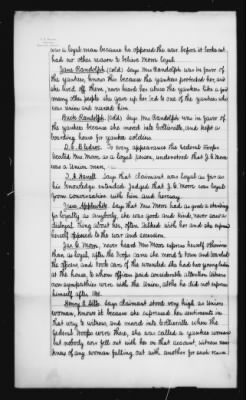 was a loyal man because he opposed the war before it broke out,
had no other reason to believe Moon loyal.
Jane Randolph (cold) says Mrs Randolph was in favor of
the yankees, knows this because the yankees protected her, and
she lived off them, never heard her abuse the yankees like a good
many other people she gave up her bed to one of the yankees who
was union and nursed him.
Buck Randolph (cold) says Mrs Randolph was in favor of
the yankees because she moved into Coltsville and kept a
boarding house for yankee soldiers.
D. C. Bledsoe. To every appearance the federal troops
treated Mrs Moon as a loyal person, understood that J. E. Moon
was a union man.
T. A. Harrell Says that claimant was loyal as far as
his knowledge extended. Judged that J. E. Moon was loyal
from conversation with him and hearsay.
Jason Applewhite. Says that Mrs Moon had as good a standing
for loyalty as anybody, she was good and kind, never saw a
disloyal thing about her, often talked with her and she expressed
herself opposed to the war and secession.
Jas. E. Moon, never heard Mrs Moon express herself otherwise
than as loyal, after the troops came she moved to town and boarded
the officers, and took care of the wounded. She had two young ladies
at the house, to whom officers paid considerable attention.
own sympathies were with the union, altho he did not express
himself after 1861.
Henry A. says claimant stood very high as union
woman, knows it because she expressed her sentiments in
that way to witness, and moved into Coltsville when the
federal troops were there, she was called a yankee woman
but nobody ever fell out with her on that account, witness never
knew of any woman falling out with another for such cause